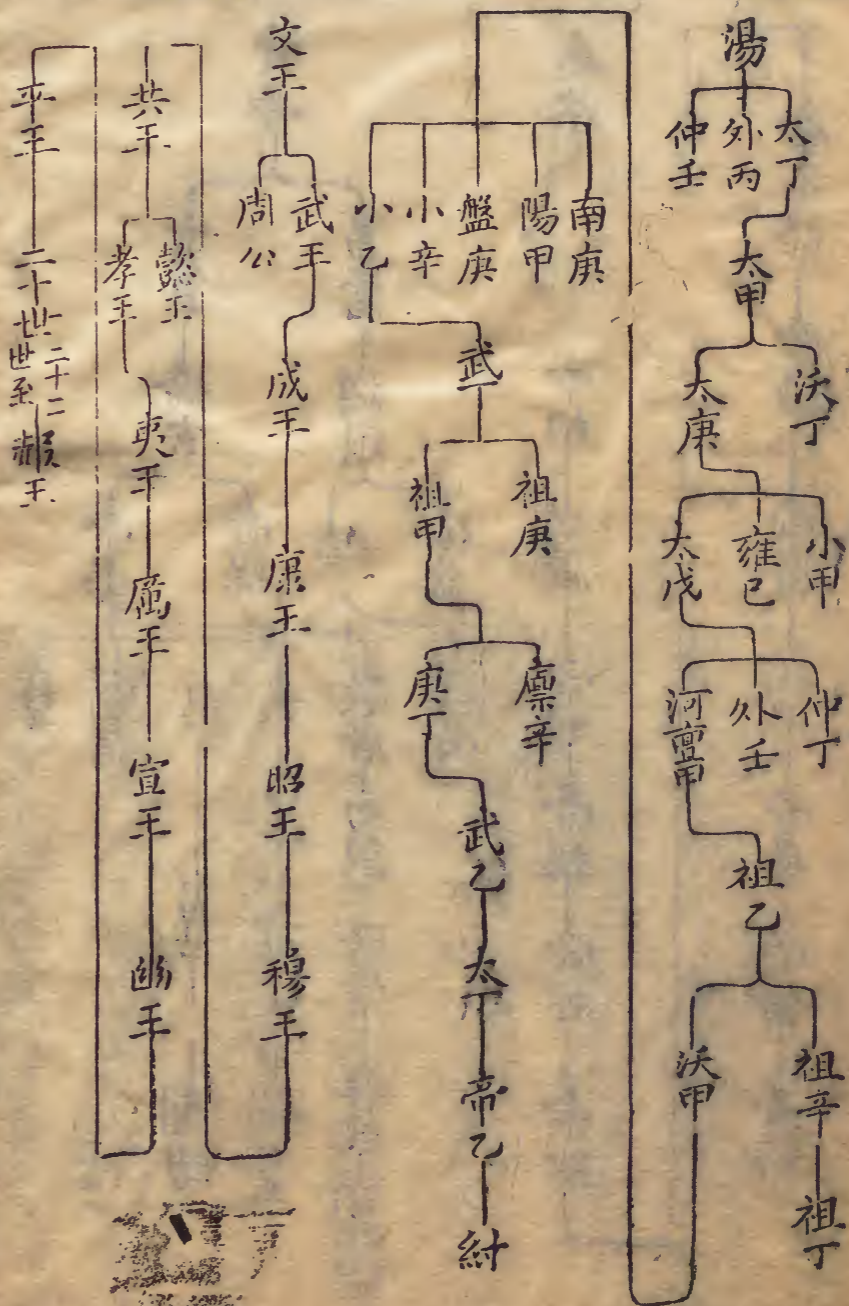 湯
太丁
外丙
仲壬
太甲
沃丁
太庚
小甲
雍已
太戊
仲丁
外壬
河亶甲
祖乙
祖辛
沃甲
祖丁
南庚
陽甲
盤庚
小辛
小乙
武丁
祖庚
祖甲
廪辛
庚丁
武乙
太丁
帝乙
紂
文王
武王
周公
成王
康王
昭王
穆王
共王
懿王
孝王
夷王
厲王
宣王
幽王
平王
二十一世
二十二世至
赧王